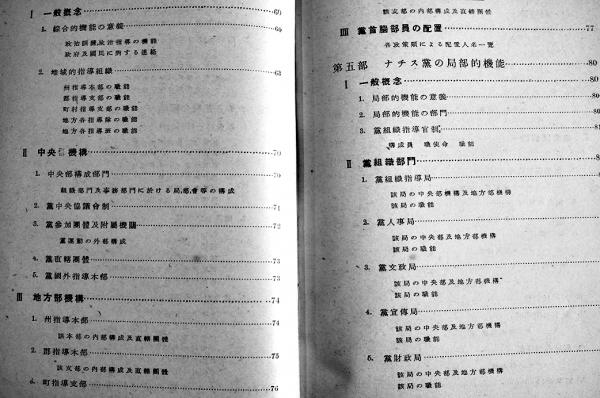 I 一般概念 69
1. 綜合的機能の意義 69
政治訓練政治指導の機能
政府及國民に對する連絡
2. 地域的指導組織 63
州指導本部の職能
郡指導支部の職能
町村指導支部の職能
地方各指導隊の職能
地方各指導班の職能
II 中央 機構 70
1. 中央部構成部門 70
組織部門及事務部門に於ける局、部、會等の構成
2. 黨中央協議會制 71
3. 黨參加團體及附屬機關 72
黨運動の外部構成
4. 黨直轄團體 73
5. 黨國外指導本部 73
III 地方部機構 74
1. 州指導本部 74
該本部の內部構成及直轄團體
2. 郡指導本部 75
該支部の內部構成及直轄團體
町指導支部 76
該支部の內部構成及直轄團體
III 黨首腦部員の配置 77
各政策順による配置人名一覽
第五部 ナチス黨の局部的機能 80
I 一般概念 80
1. 局部的機能の意義 80
2. 局部的機能の部門 80
3. 黨組織指導官制 81
構成員 職使命 職能
II 黨組織部門
1. 黨組織指導局
該局の中央部機構及地方部機構
該局の職能
2. 黨人事局
該局の中央部及地方部機構
該局の職能
3. 黨文政局
該局の中央部及地方部機構
該局の職能
4. 黨宣傳局
該局の中央部及地方部機構
該局の職能
5. 黨財政局
該局の中央部及地方部機構
該局の職能